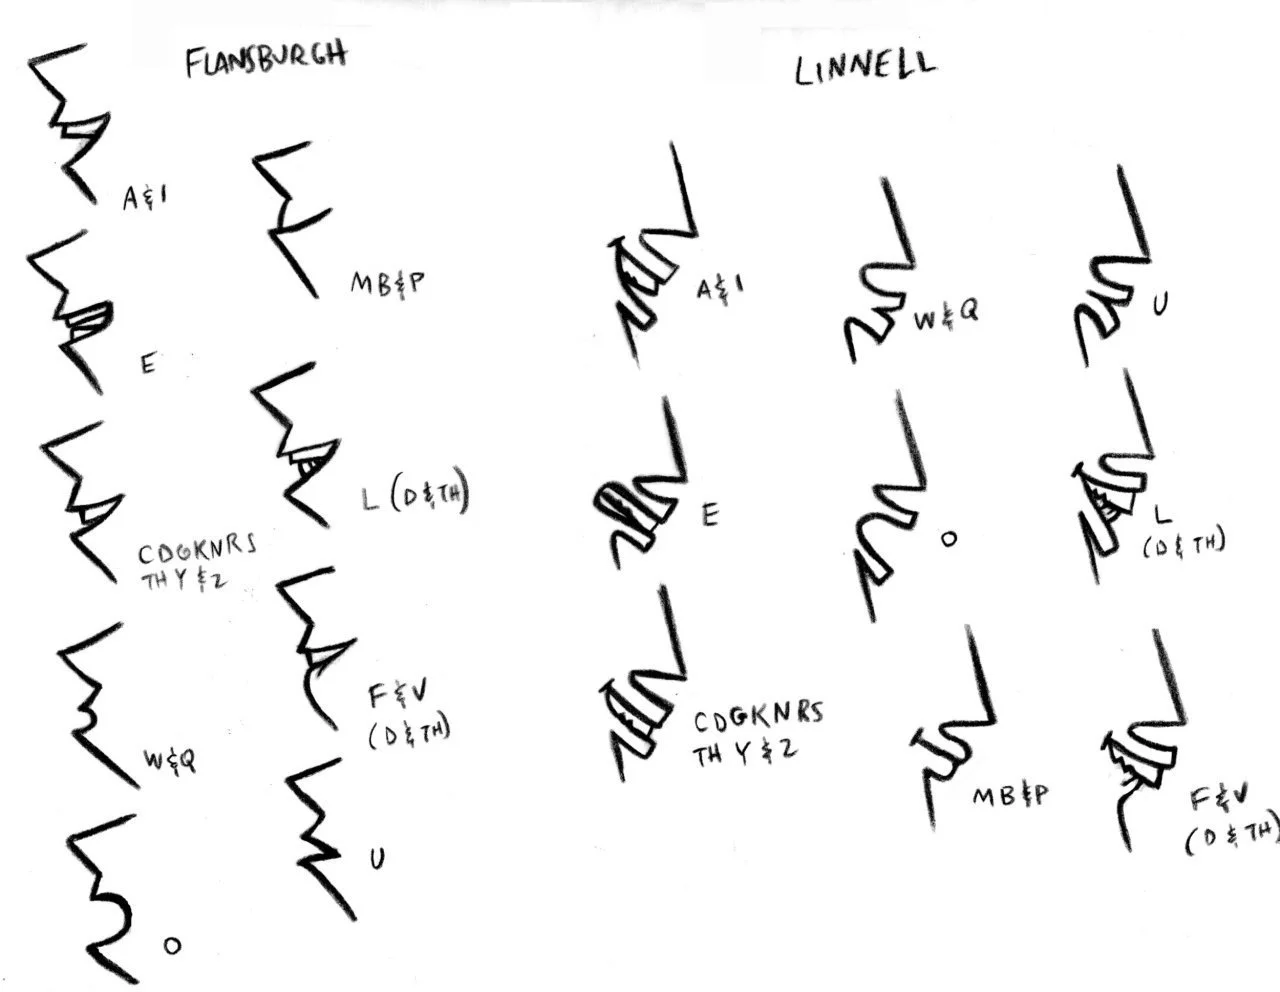 FLANSBURGH
A&I
E
CDGKNRS
TH Y & Z
W&Q
O
MB&P
L (D&TH)
F&V
(D&TH)
U
LINNELL
A&I
E
CDGKNRS
TH Y & Z
W&Q
O
MB&P
U
L
(D & TH)
F&V
(D & TH)